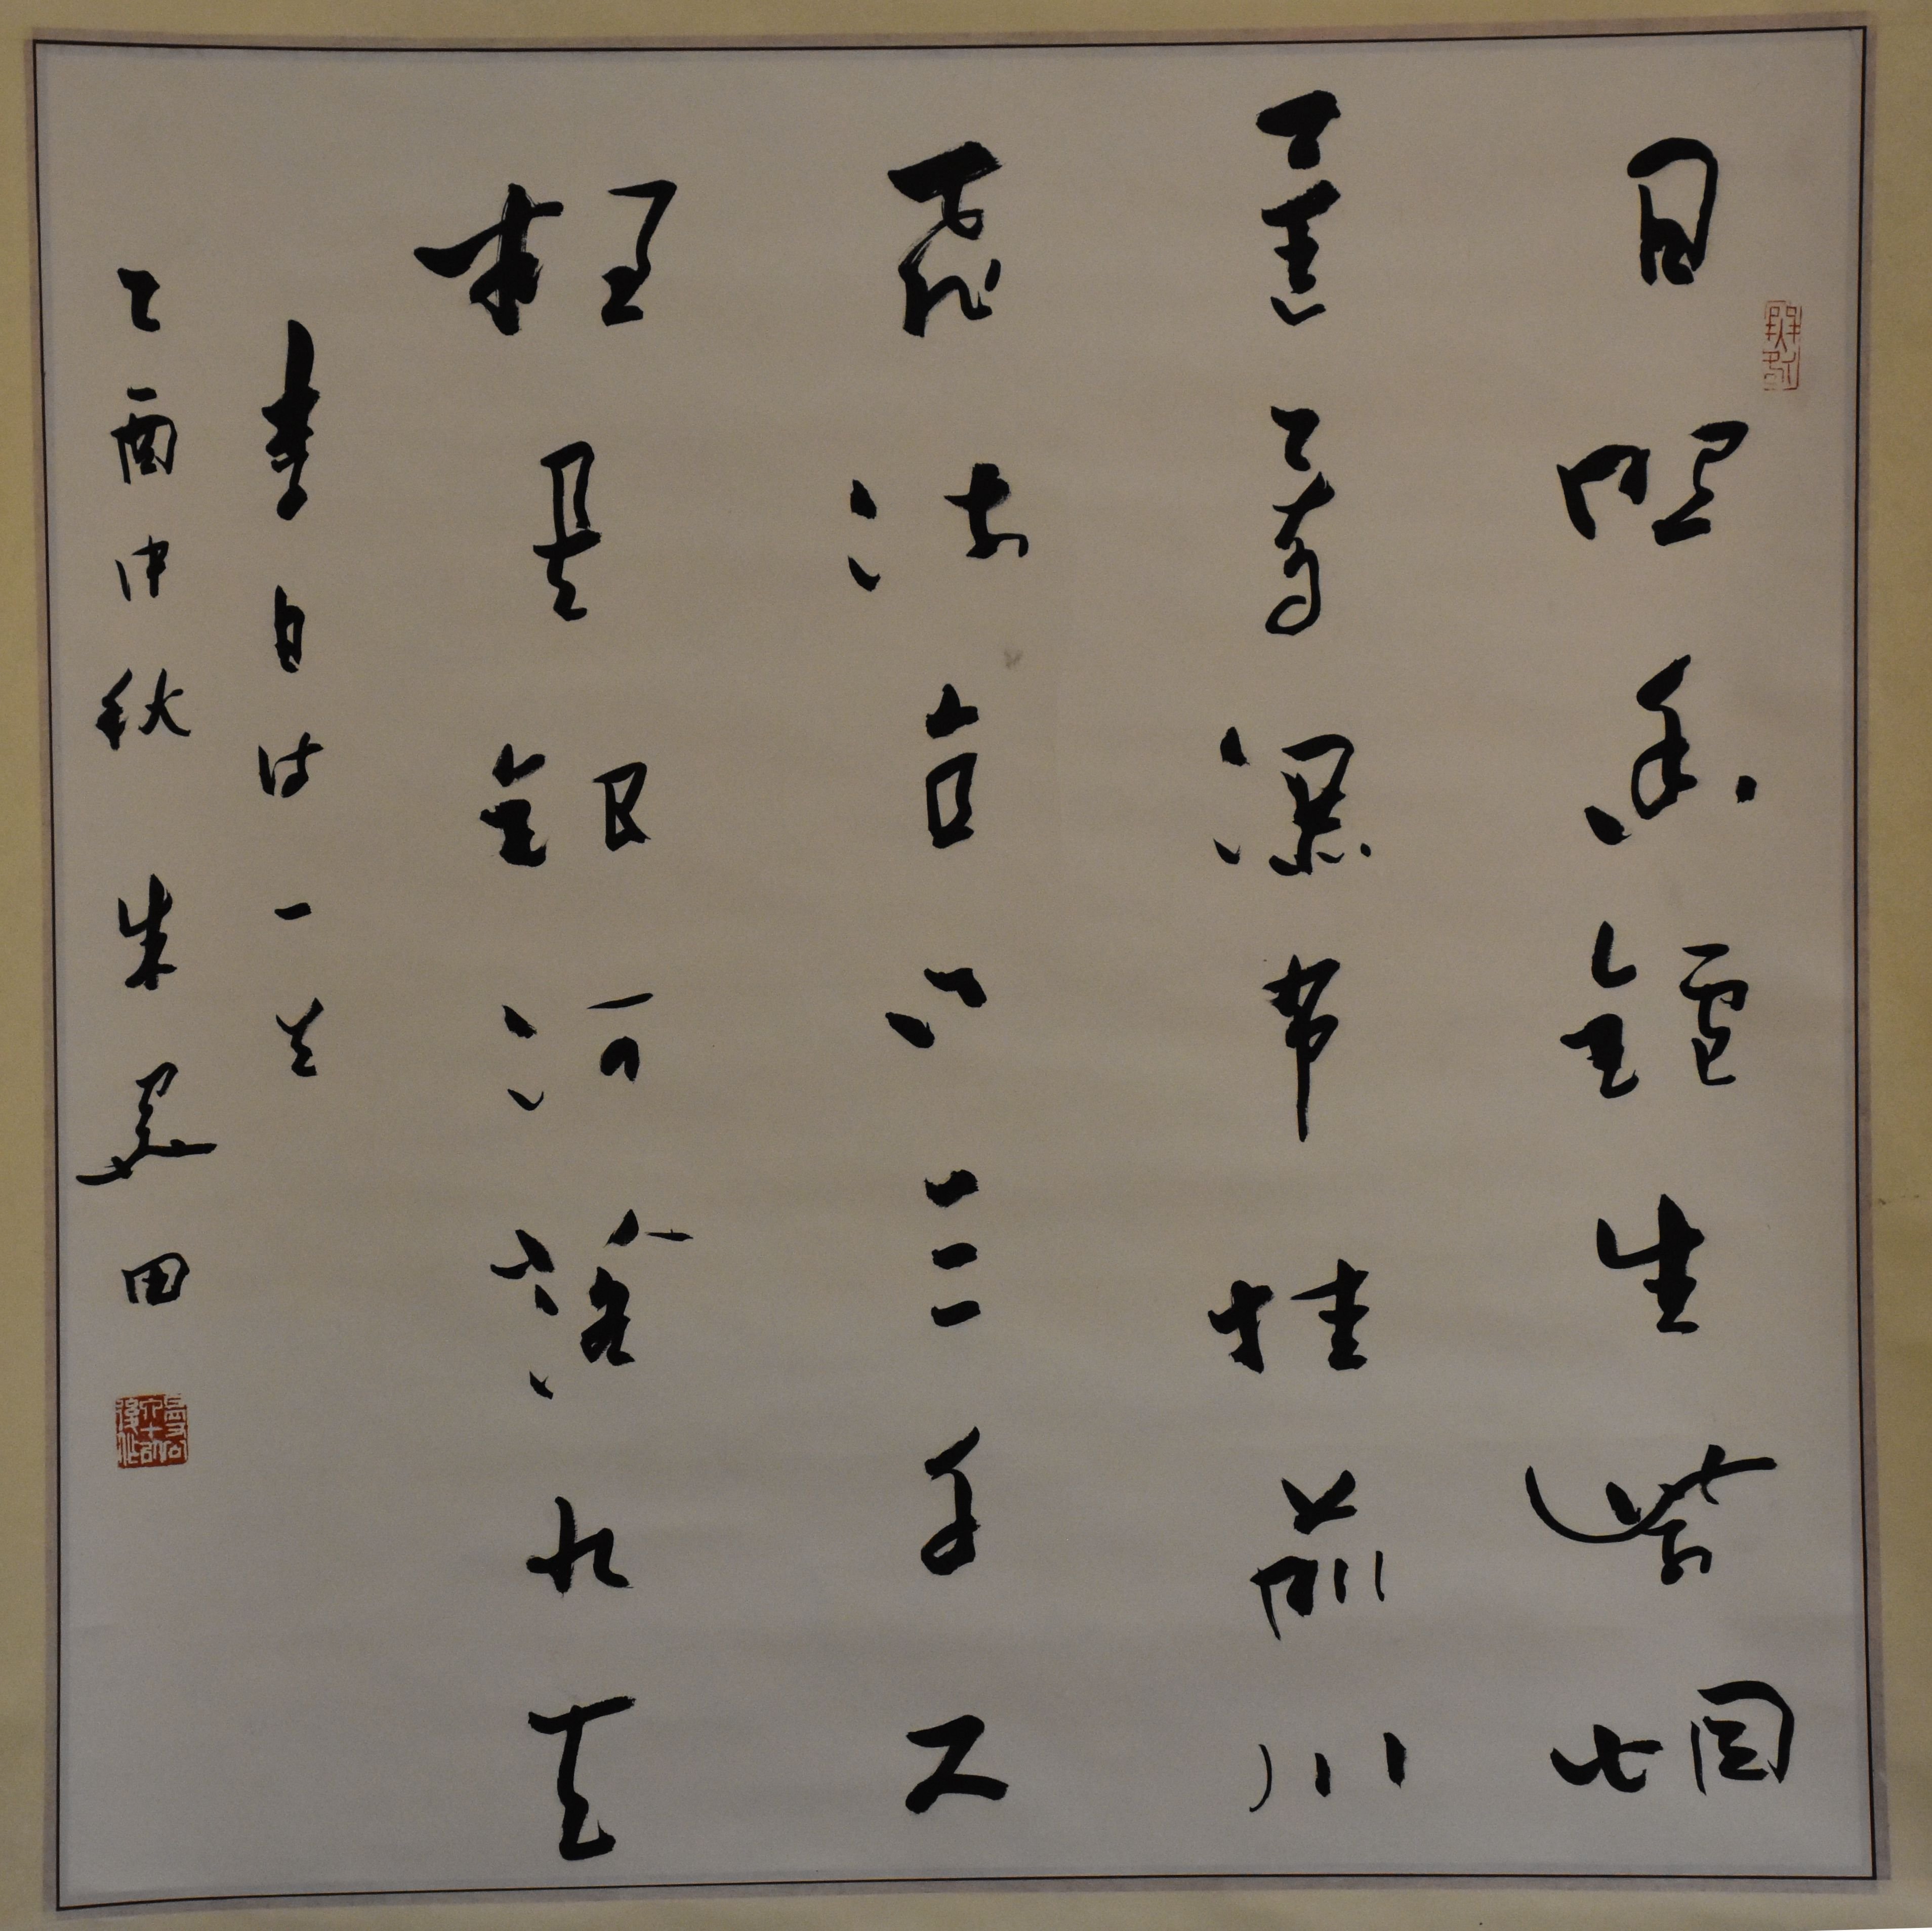 日照香鑪生紫烟
遥看瀑布挂前川
飛流直下三千尺
疑是銀河落九天
李白詩一首
乙酉仲秋 朱関田